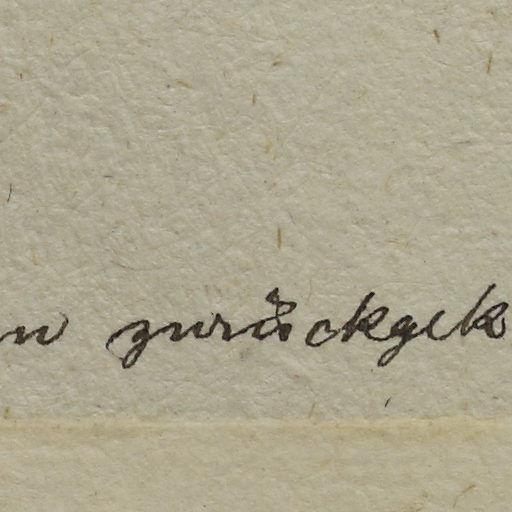 zurückgek